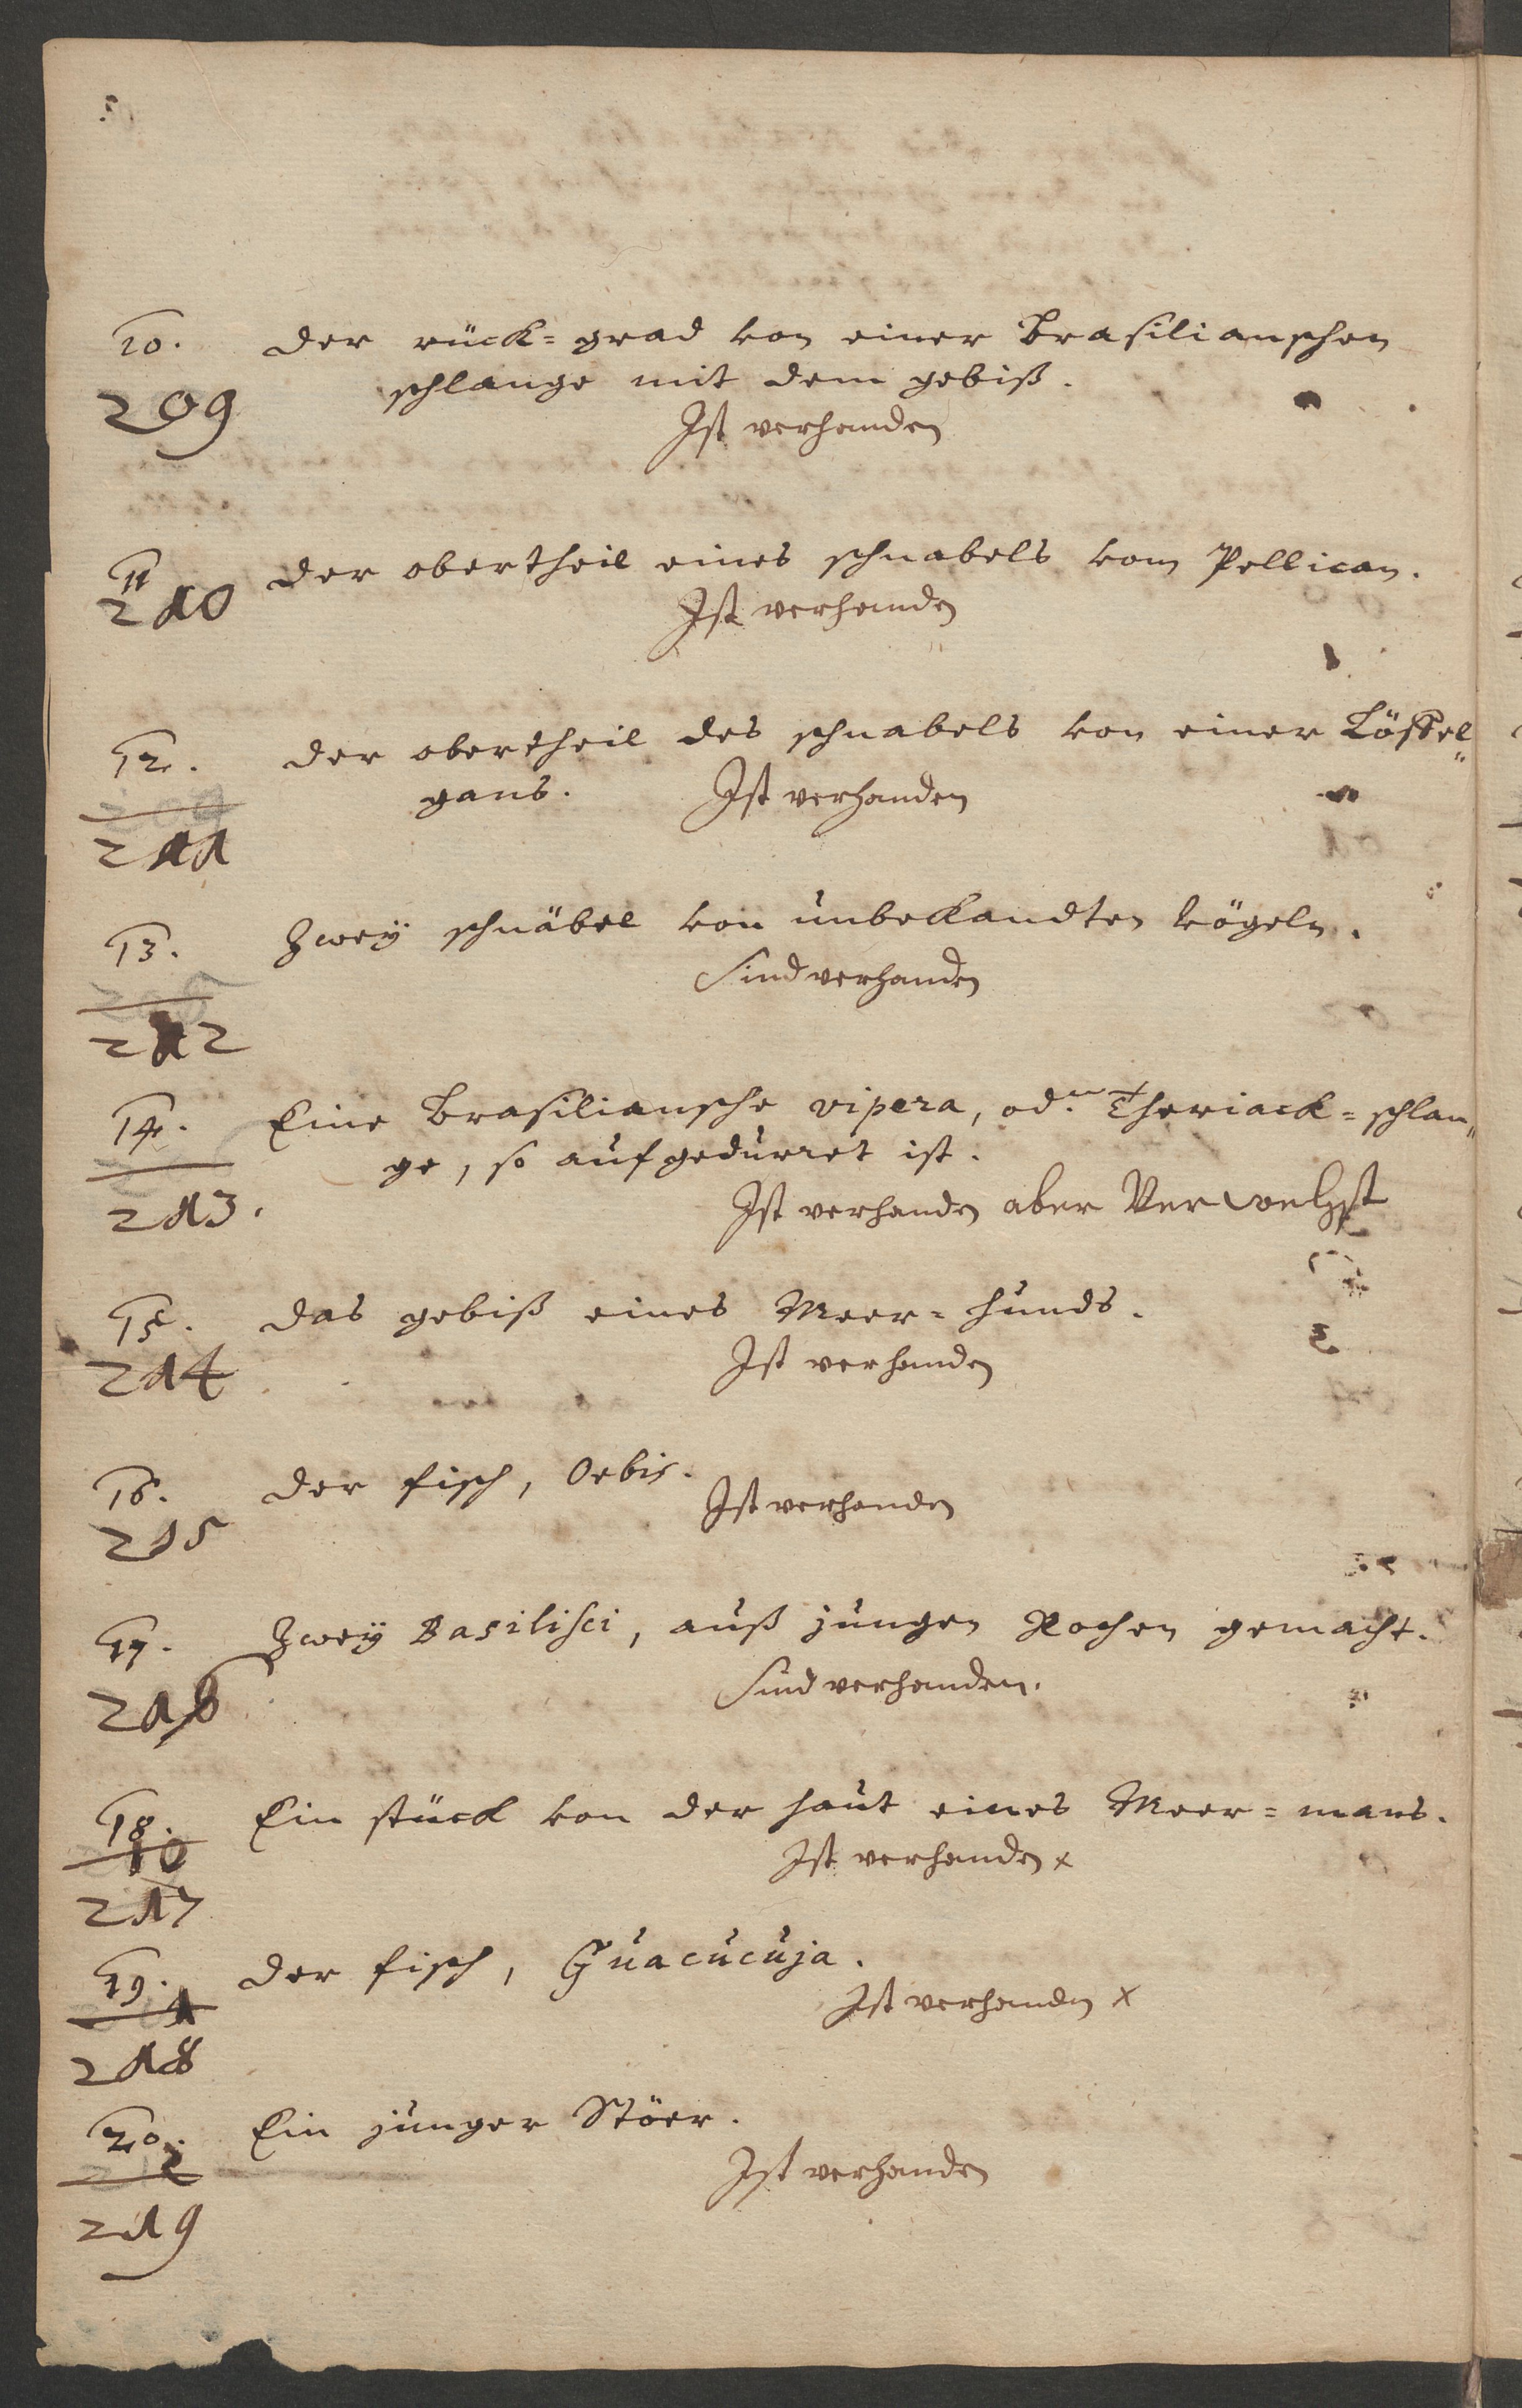 10. der rück=grad von einer Brasilianschen
209 schlange mit dem gebiß.
Ist verhanden
11 der obertheil eines schnabels vom Pellican.
210 Ist verhanden
12. der obertheil des schnabels von einer Löffel„
gans. Ist verhanden
211
13. Zweÿ schnäbel von unbekandten vögeln.
Sind verhanden
212
14. Eine Brasiliansche vipera, od. Theriack=schlan„
ge, so aufgedurret ist.
213. Ist verhanden aber
15. das gebiß eines Meer=hunds.
214 Ist verhanden
16. der fisch, Orbis.
Ist verhanden
215
17. Zweÿ Basilisci, auß jungen Rochen gemacht.
216 Sind verhanden.
18. Ein stück von der haut eines Meer=mans.
10 Ist verhanden x
217
19. der fisch, Guacucuja.
Ist verhanden x
218
20. Ein junger Stöer.
Ist verhanden
219